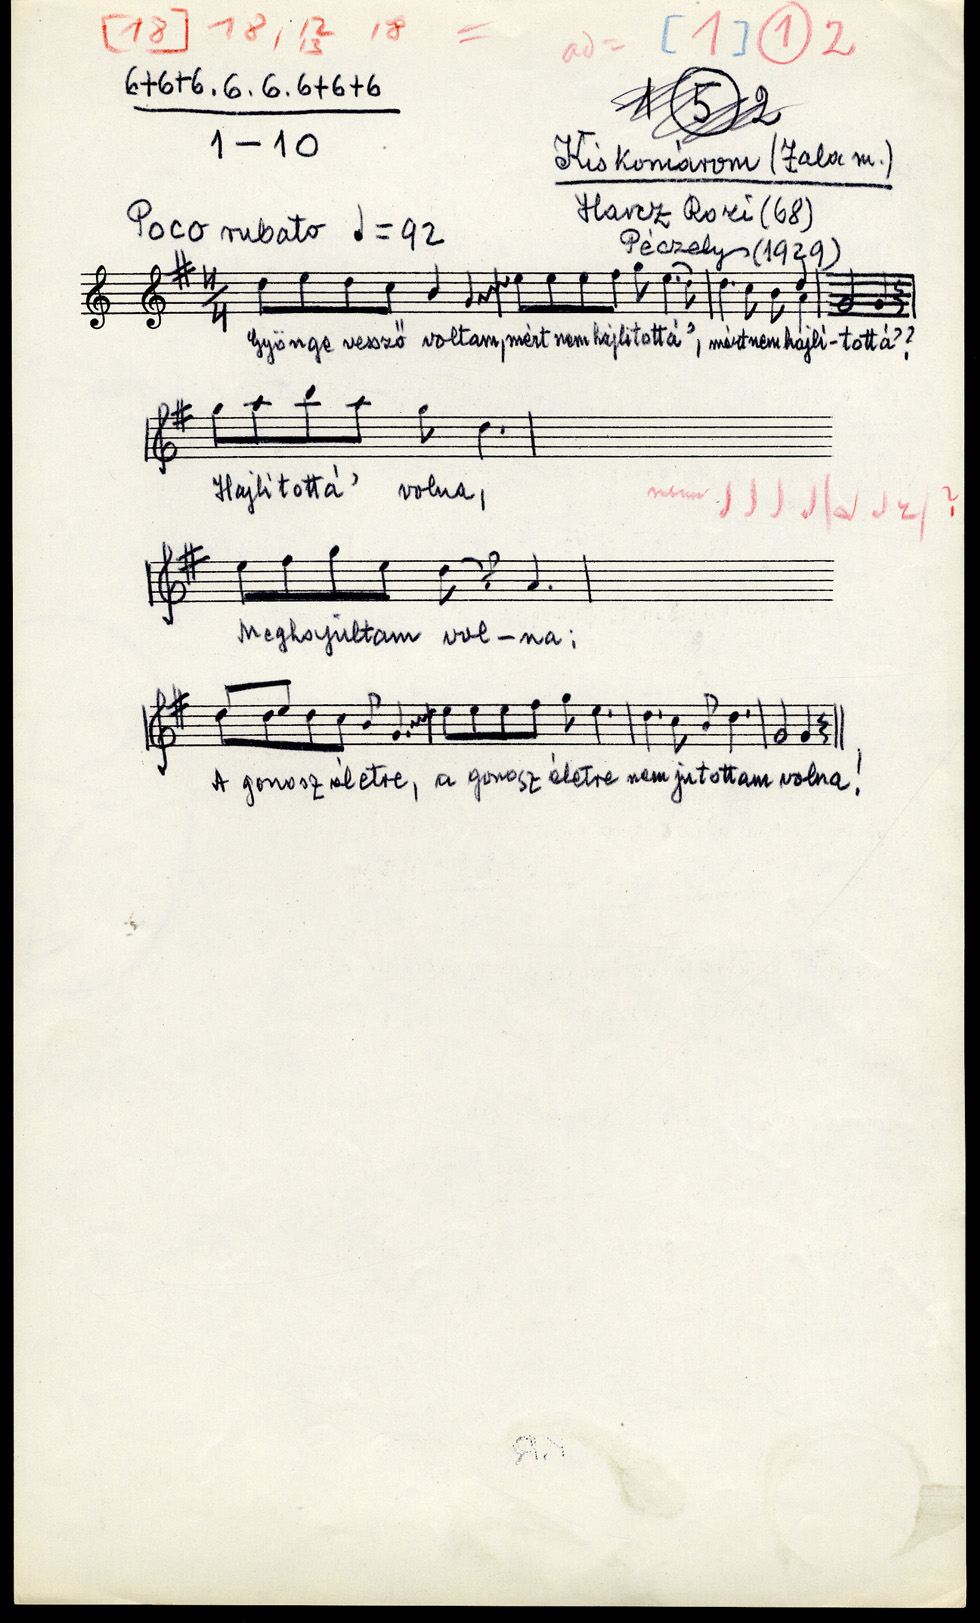 [18] 18, 12 13 18 = ad= [1] ① 2
6+6+6. 6. 6. 6+6+6
1 ⑤ 2
1–10
Kiskomárom (Zala m.)
Harcz Rozi (68)
Poco rubato ♩=92
Péczely (1929)
4
Gyönge vessző voltam, mért nem hajlitottá', mért nem hajli-tottá'?
Hajlitottá' volna,
nem ?
Meghajúltam vol-na;
A gonosz életre, a gonosz életre nem jutottam volna!